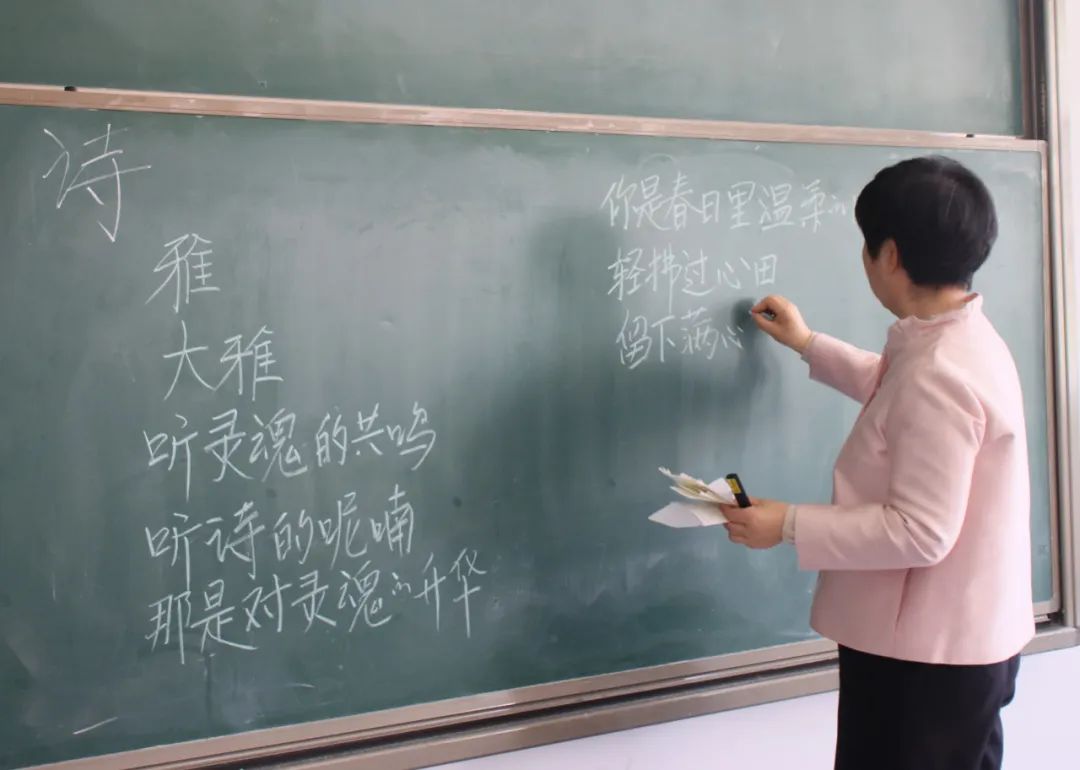 诗
雅
大雅
听灵魂的共鸣
听诗的呢喃
那是对灵魂的升华
你是春日里温柔的
轻拂过心田
留下满心